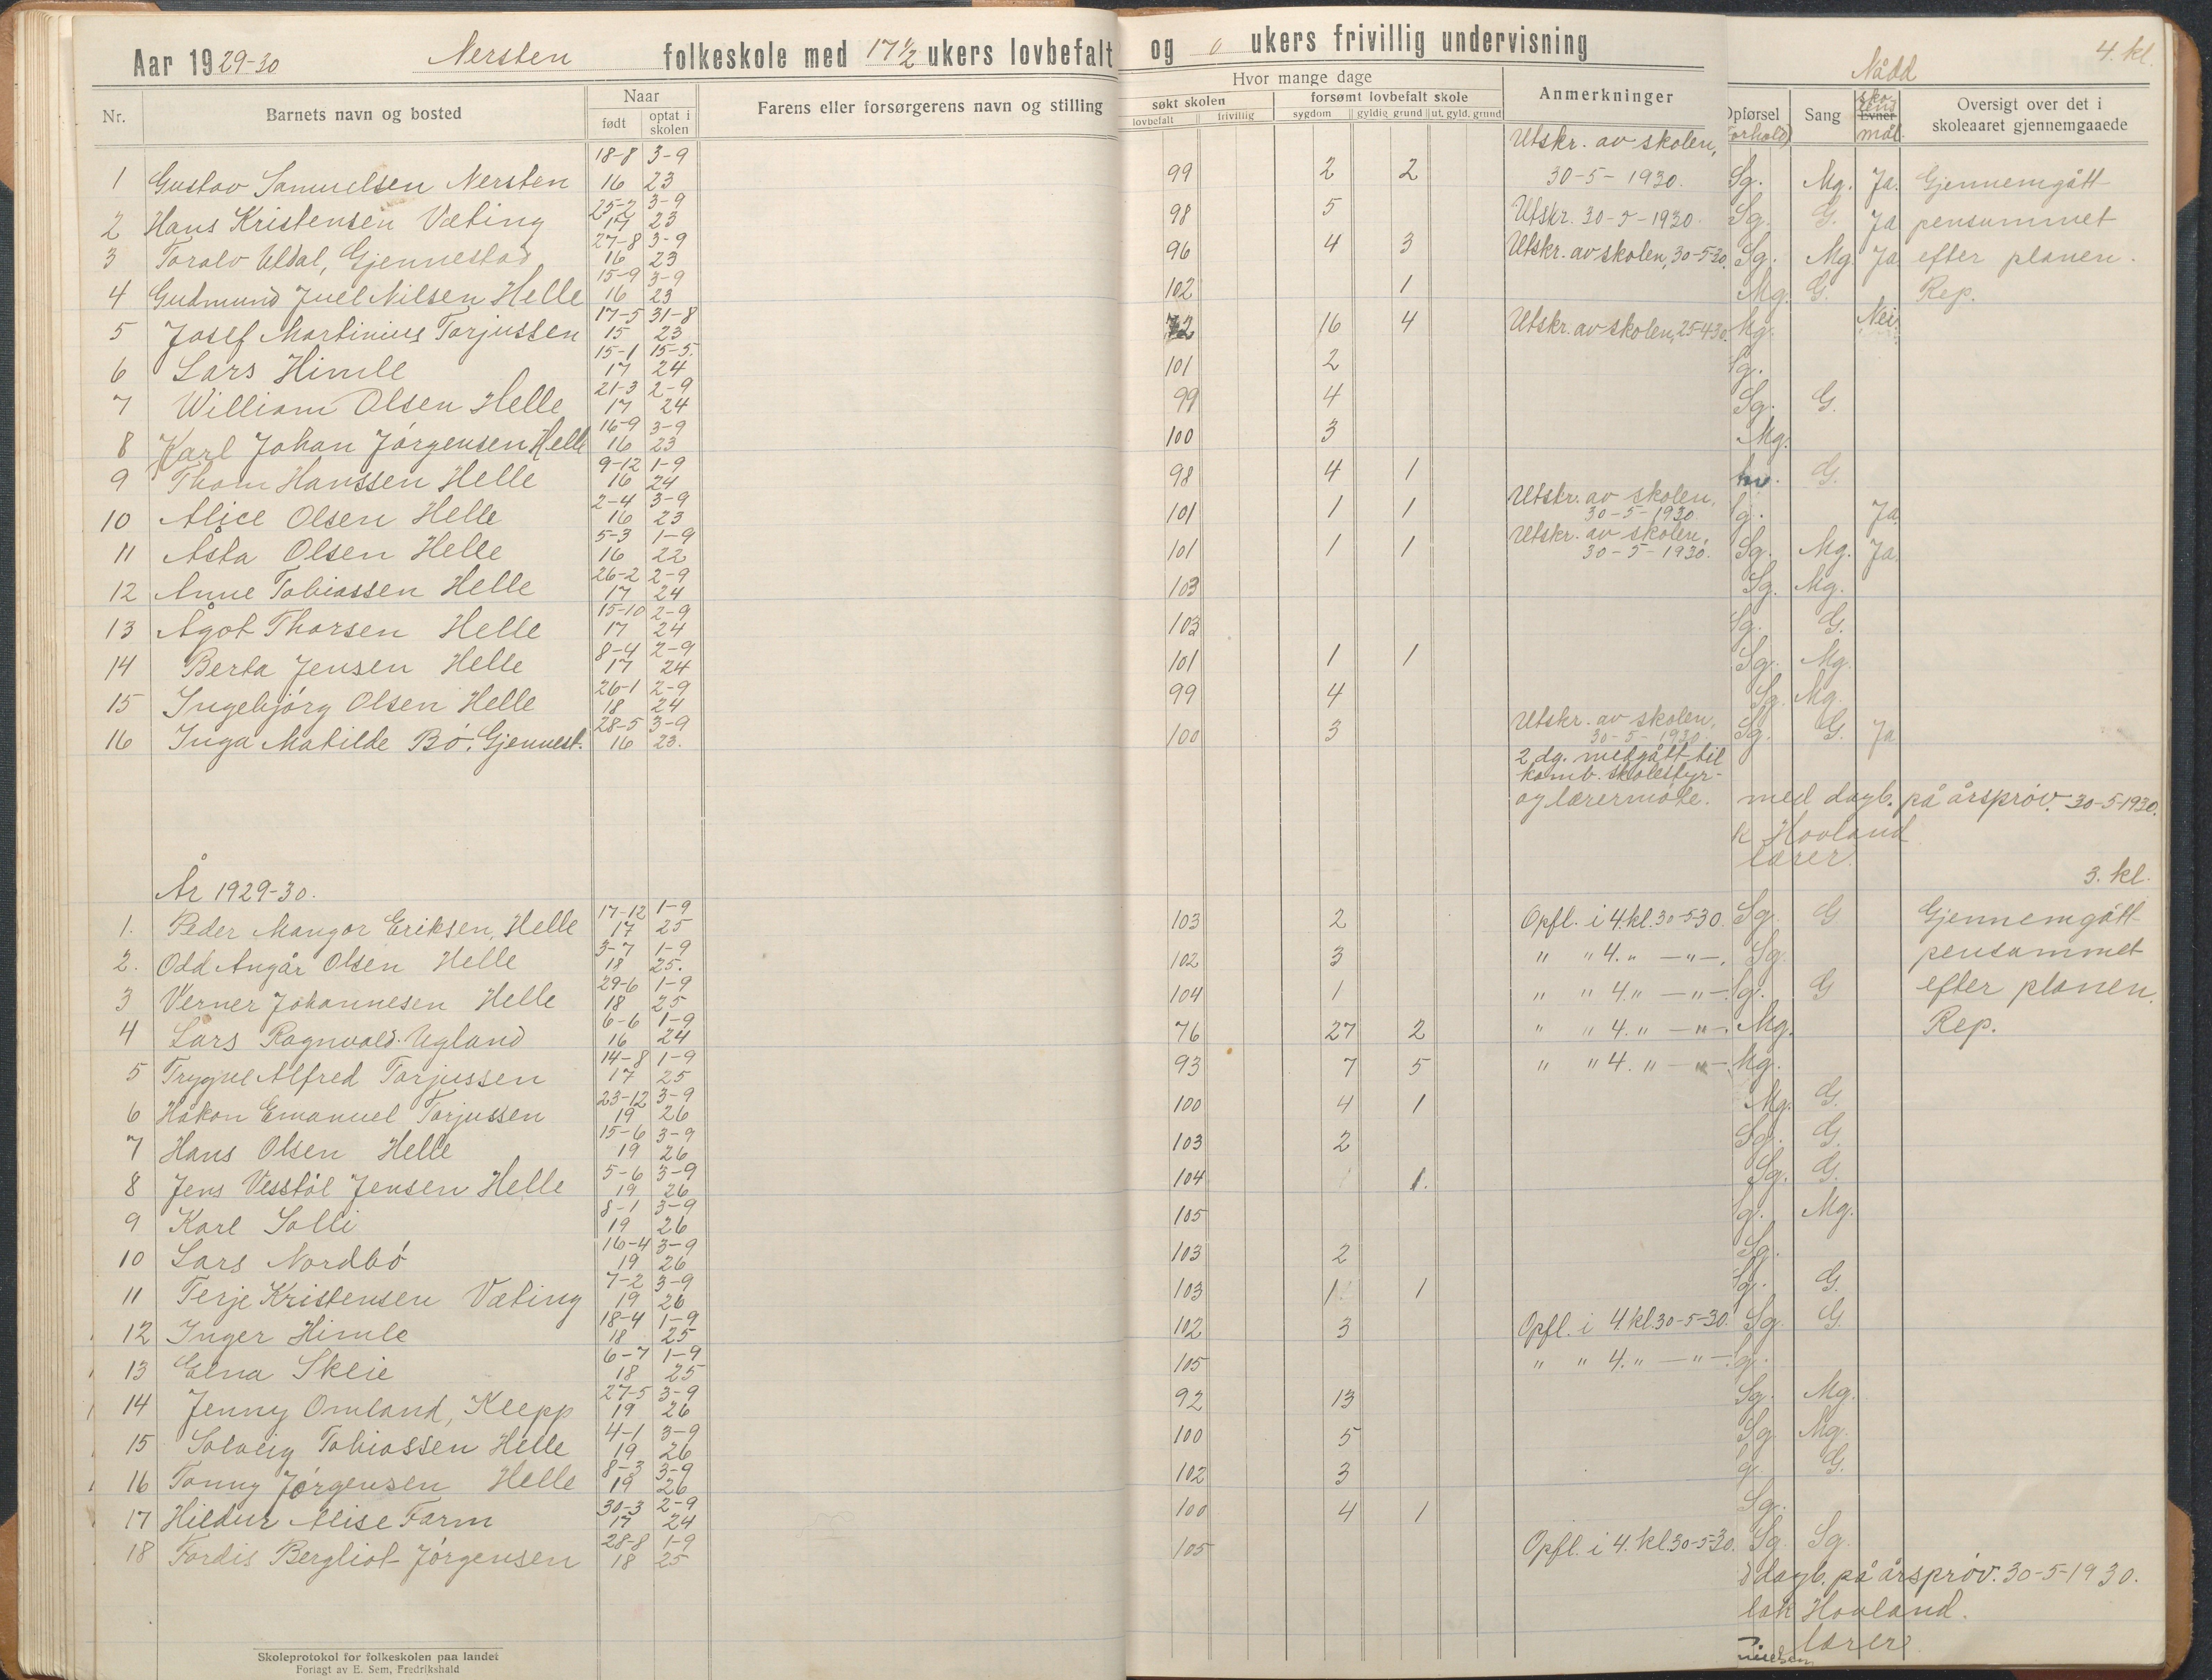 Aar 1929-30 Nersten folkeskole med 17½ ukers lovbefalt og 0 ukers frivillig undervisning
4. kl.
Nådd
Nr. Barnets navn og bosted Naar født optat i skolen Farens eller forsørgerens navn og stilling Hvor mange dage søkt skolen lovbefalt frivillig forsømt lovbefalt skole sygdom gyldig grund ut. gyld. grund Anmerkninger Opførsel (Forhold) Sang Evner skolens mål Oversigt over det i skoleaaret gjennemgaaede
1 Gustav Samuelsen Nersten 18-8 16 3-9 23 99 2 2 Utskr. av skolen, 30-5-1930. Sg. Mg. Ja. Gjennemgått
2 Hans Kristensen Væting 25-2 17 3-9 23 98 5 Utskr. 30-5-1930. Sg. G. Ja pensummet
3 Toralv Uldal, Gjennestad 27-8 16 3-9 23 96 4 3 Utskr. av skolen, 30-5-30. Sg. Mg. Ja efter planen.
4 Gudmund Juel Nilsen Helle 15-9 16 3-9 23 102 1 Mg. G. Rep.
5 Josef Martinius Torjussen 17-5 15 31-8 23 72 16 4 Utskr. av skolen, 25-4-30. Mg. Nei.
6 Lars Himle 15-1 17 15-5. 24 101 2 Sg.
7 William Olsen Helle 21-3 17 2-9 24 99 4 Sg. G.
8 Karl Johan Jørgensen Helle 16-9 16 3-9 23 100 3 Mg.
9 Thom Hanssen Helle 9-12 16 1-9 24 98 4 1 G.
10 Alice Olsen Helle 2-4 16 3-9 23 101 1 1 Utskr. av skolen, 30-5-1930. Sg. Ja.
11 Asta Olsen Helle 5-3 16 1-9 22 101 1 1 Utskr. av skolen, 30-5-1930. Sg. Mg. Ja.
12 Anne Tobiassen Helle 26-2 17 2-9 24 103 Sg. Mg.
13 Ågot Thorsen Helle 15-10 17 2-9 24 103 Sg. G.
14 Berta Jensen Helle 8-4 17 2-9 24 101 1 1 Sg. Mg.
15 Ingebjørg Olsen Helle 26-1 18 2-9 24 99 4 Sg. Mg.
16 Inga Matilde Bø, Gjennest. 28-5 16 3-9 23. 100 3 Utskr. av skolen, 30-5-1930. Sg. G. Ja
2 dg. medgått til
komb. skolestyr-
og lærermøte. med dagb. på årsprøv. 30-5-1930.
Hovland
lærer.
3. kl.
År 1929-30.
1. Peder Mangor Eriksen, Helle 17-12 17 1-9 25 103 2 Opfl. i 4. kl. 30-5-30. Sg. G Gjennemgått
2. Odd Angår Olsen Helle 3-7 18 1-9 25. 102 3 " " 4. " —"—. Sg. pensummet
3 Verner Johannesen Helle 29-6 18 1-9 25 104 1 " " 4. " —"—. Sg. G efter planen.
4 Lars Ragnvald Ugland 6-6 16 1-9 24 76 27 2 " " 4. " —"—. Mg. Rep.
5 Trygve Alfred Torjussen 14-8 17 1-9 25 93 7 5 " " 4. " —"—. Mg.
6 Håkon Emanuel Torjussen 23-12 19 3-9 26 100 4 1 Mg. G.
7 Hans Olsen Helle 15-6 19 3-9 26 103 2 Sg. G.
8 Jens Vesstøl Jensen Helle 5-6 19 3-9 26 104 1. Sg. G.
9 Karl Solli 8-1 19 3-9 26 105 Sg. Mg.
10 Lars Nordbø 16-4 19 3-9 26 103 2 Sg.
11 Terje Kristensen Væting 7-2 19 3-9 26 103 1 1 Sg. G.
12 Inger Himle 18-4 18 1-9 25 102 3 Opfl. i 4. kl. 30-5-30. Sg. G.
13 Elna Skeie 6-7 18 1-9 25 105 " " 4. " —"—. Sg.
14 Jenny Omland, Klepp 27-5 19 3-9 26 92 13 Sg. Mg.
15 Solveig Tobiassen Helle 4-1 19 3-9 26 100 5 Sg. Mg.
16 Tonny Jørgensen Helle 8-3 19 3-9 26 102 3 Sg. G.
17 Hildur Alise Farm 30-3 17 2-9 24 100 4 1 Sg.
18 Tordis Bergliot Jørgensen 28-8 18 1-9 25 105 Opfl. i 4. kl. 30-5-30. Sg. Sg.
dagb. på årsprøv. 30-5-1930.
Hovland.
lærer.
Skoleprotokol for folkeskolen paa landet
Forlagt av E. Sem, Fredrikshald